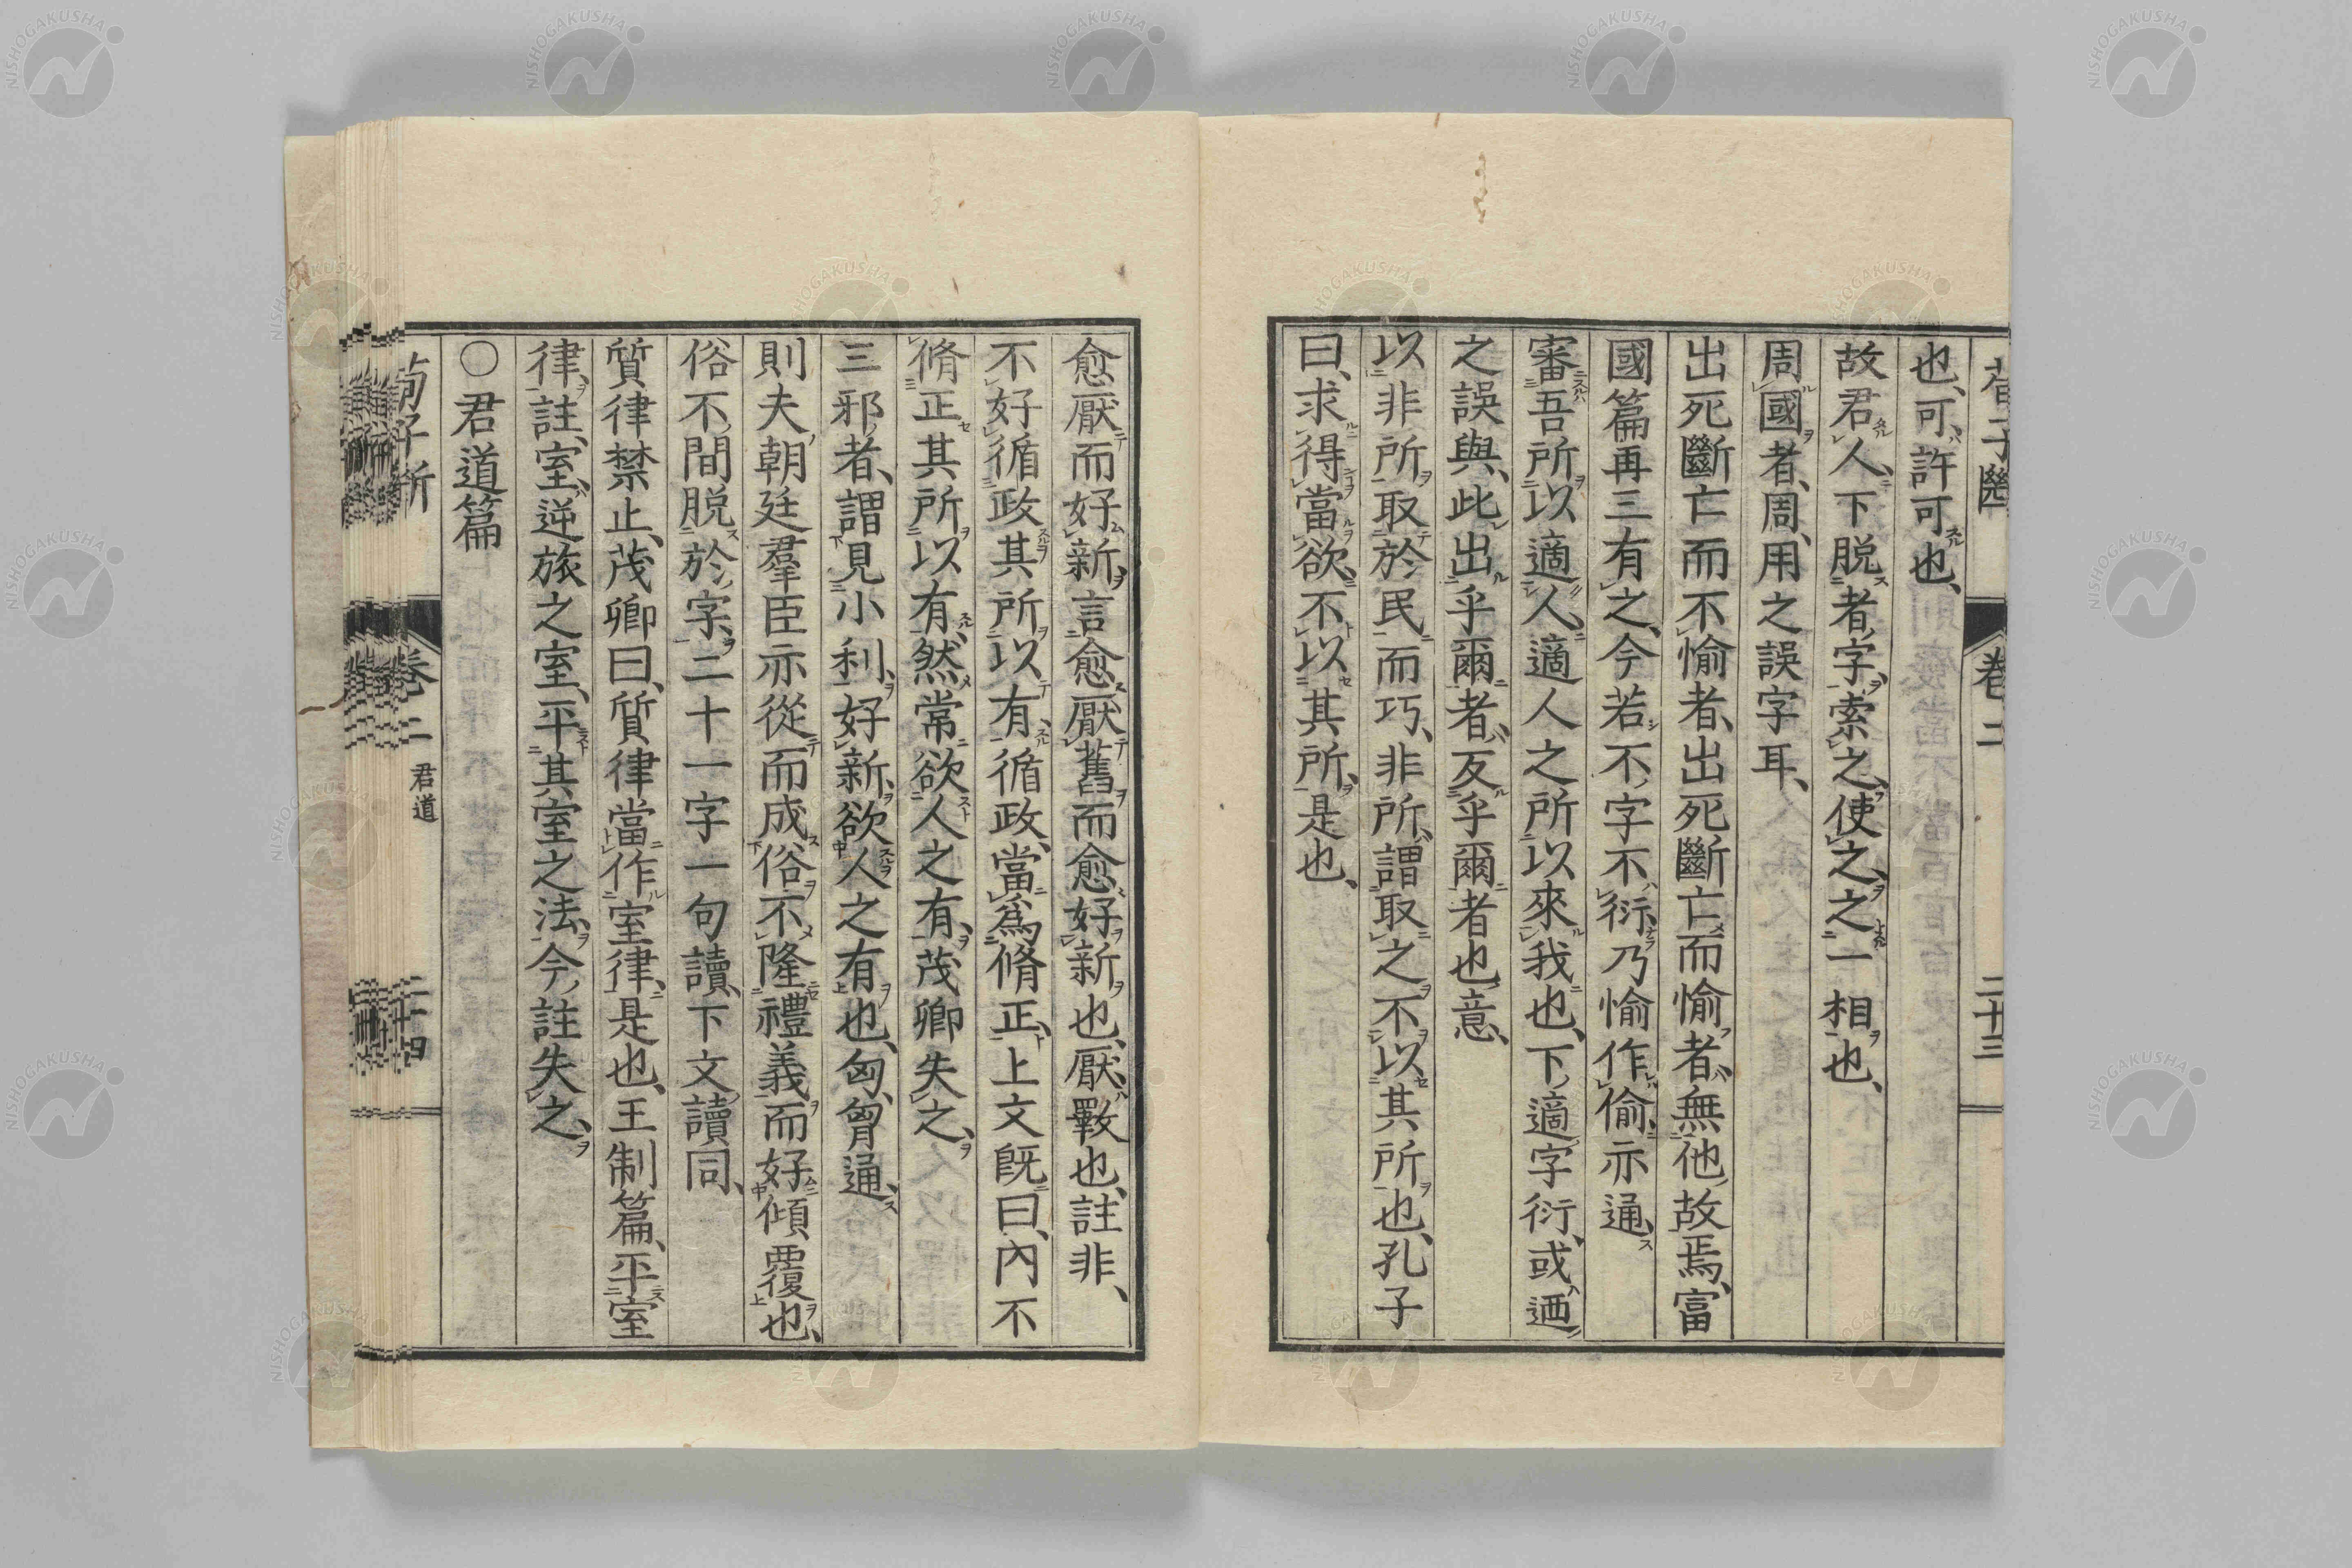 荀子斷 卷二 二十三
也、可、許可也、
故君人、下脱者字、索之、使之、之一相也、
周國者、周、用之誤字耳、
出死斷亡而不愉者、出死斷亡而愉者、無他故焉、富
國篇再三有之、今若不字不衍、乃愉作偷、亦通、
審吾所以適人、適人之所以來我也、下適字衍、或迺
之誤與、此出乎爾者、反乎爾者也意、
以非所取於民而巧、非所、謂取之不以其所也、孔子
曰、求得當欲、不以其所、是也、
愈厭而好新、言愈厭舊而愈好新也、厭、斁也、註非、
不好循政其所以有、循政、當爲脩正、上文既曰、內不
脩正其所以有、然常欲人之有、茂卿失之、
三邪者、謂見小利、好新、欲人之有也、匈、胷通、
則夫朝廷羣臣亦從而成俗不隆禮義而好傾覆也、
俗不間脱於字、二十一字一句讀、下文讀同、
質律禁止、茂卿曰、質律當作室律、是也、王制篇、平室
律、註、室、逆旅之室、平其室之法、今註失之、
〇君道篇
荀子斷 卷二 君道 二十四